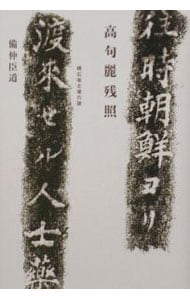 往時朝鮮ヨリ
高句麗残照
積石塚古墳の謎
渡來セル人士藥
備仲臣道